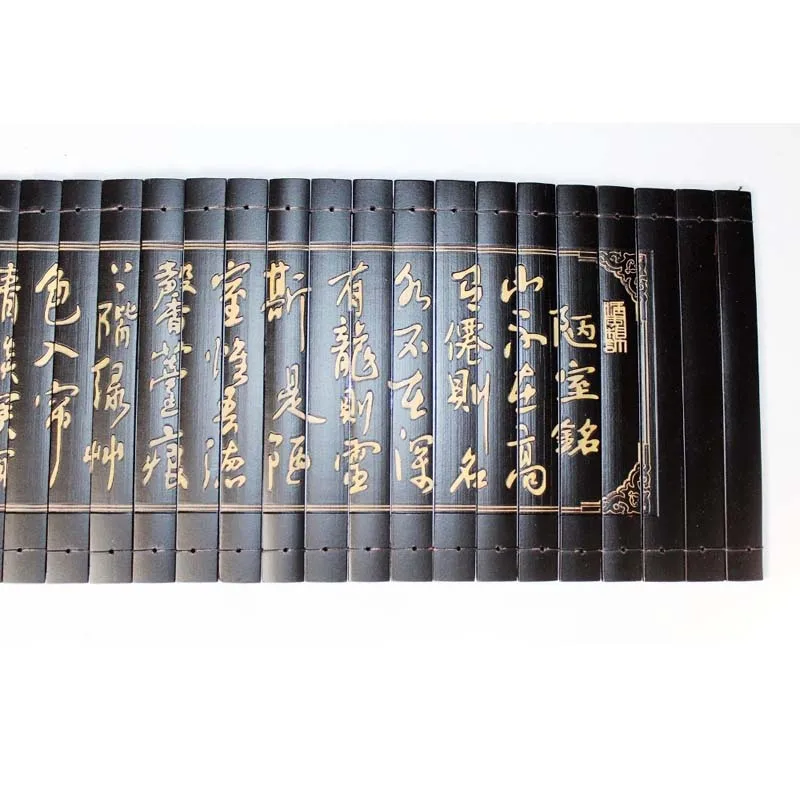 陋室銘
山不在高
有僊則名
水不在深
有龍則靈
斯是陋
室惟吾德
馨薹痕
上階緑艸
色入帘